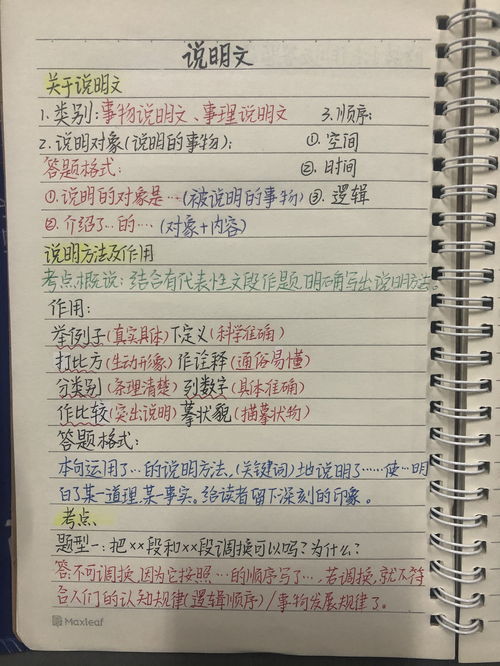 说明文
关于说明文
1.类别:事物说明文、事理说明文 3.顺序:
2.说明对象(说明的事物): ①.空间
答题格式: ②.时间
①.说明的对象是…(被说明的事物) ③.逻辑
②.介绍了…的…(对象+内容)
说明方法及作用
考点概说:结合有代表性文段作题,明确写出说明方法。
作用:
举例子(真实具体)下定义(科学准确)
打比方(生动形象)作诠释(通俗易懂)
分类别(条理清楚)列数字(具体准确)
作比较(突出说明)摹状貌(描摹状物)
答题格式:
本句运用了…的说明方法、(关键词)地说明了……使…明
白了某一道理某一事实。给读者留下深刻的印象。
考点、
题型一:把××段和××段调换可以吗?为什么?
答:不可调换,因为它按照…的顺序写了…,若调换,就不符
合人们的认知规律(逻辑顺序)/事物发展规律了。
Maxleaf